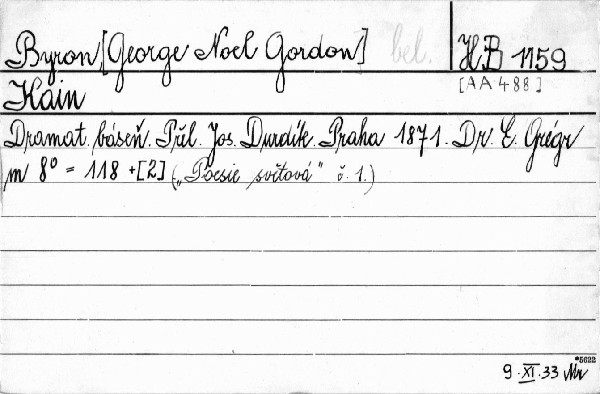 Byron [George Noel Gordon] bel. HB 1159
[AA 488]
Kain
Dramat. báseň. Přel. Jos. Durdík. Praha 1871. Dr. E. Grégr
m 8° = 118 + [2] („Poesie světová“ č. 1.)
*5622
9. XI. 33 Mr